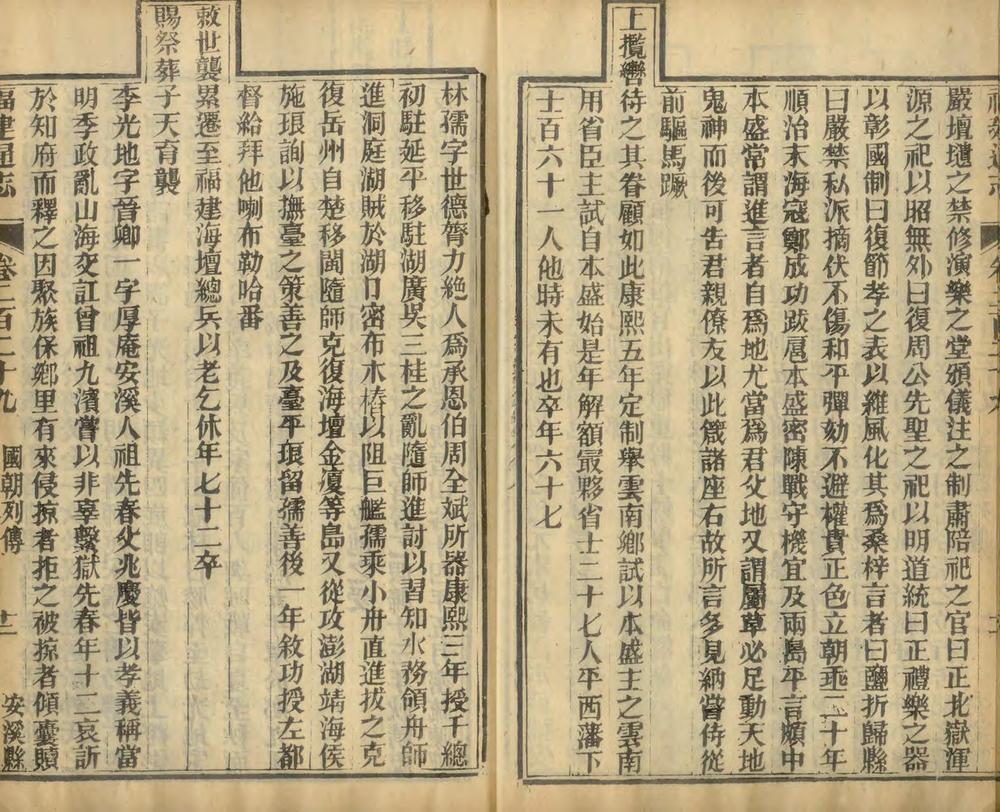 嚴壇壝之禁修演樂之堂頒儀注之制肅陪祀之官曰正北嶽渾
源之祀以昭無外曰復周公先聖之祀以明道統曰正禮樂之器
以彰國制曰復節孝之表以維風化其爲桑梓言者曰鹽折歸縣
曰嚴禁私派摘伏不傷和平彈劾不避權貴正色立朝垂二十年
順治末海寇鄭成功跋扈本盛密陳戰守機宜及兩島平言頻中
本盛常謂進言者自爲地尤當爲君父地又謂屬草必足動天地
鬼神而後可告君親僚友以此箴諸座右故所言多見納嘗侍從
前驅馬蹶
上攬轡待之其眷顧如此康熙五年定制舉雲南鄉試以本盛主之雲南
用省臣主試自本盛始是年解額最夥省士二十七人平西藩下
士百六十一人他時未有也卒年六十七
林孺字世德膂力絶人爲承恩伯周全斌所器康熙三年授千總
初駐延平移駐湖廣吳三桂之亂隨師進討以習知水務領舟師
進洞庭湖賊於湖口密布木樁以阻巨艦孺乘小舟直進拔之克
復岳州自楚移閩隨師克復海壇金廈等島又從攻澎湖靖海侯
施琅詢以撫臺之策善之及臺平琅留孺善後一年敘功授左都
督給拜他喇布勒哈番
敕世襲累遷至福建海壇總兵以老乞休年七十二卒
賜祭葬子天育襲
李光地字晉卿一字厚庵安溪人祖先春父兆慶皆以孝義稱當
明季政亂山海交訌曾祖九濱嘗以非辜繫獄先春年十二哀訴
於知府而釋之因聚族保鄉里有來侵掠者拒之破掠者傾囊贖
福建通志 卷二百二十九 國朝列傳 十二 安溪縣